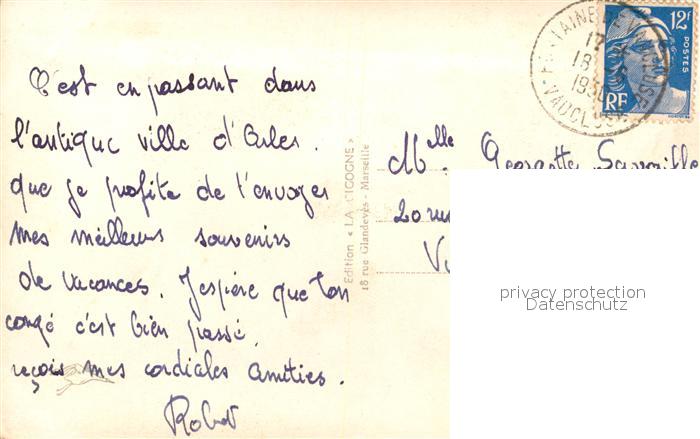 C'est en passant dans
l'antique ville d'Arles.
que je profite de t'envoyer
mes meilleurs souvenirs
de vacances. J'espère que ton
congé c'est bien passé.
reçois mes cordiales amitiés.
Robert
Edition « LA CIGOGNE »
18 rue Glandevès - Marseille
FONTAINE DE VAUCLUSE
17
18
VAUCLUSE
12f
POSTES
RF
Melle Georgette
20 rue
privacy protection
Datenschutz